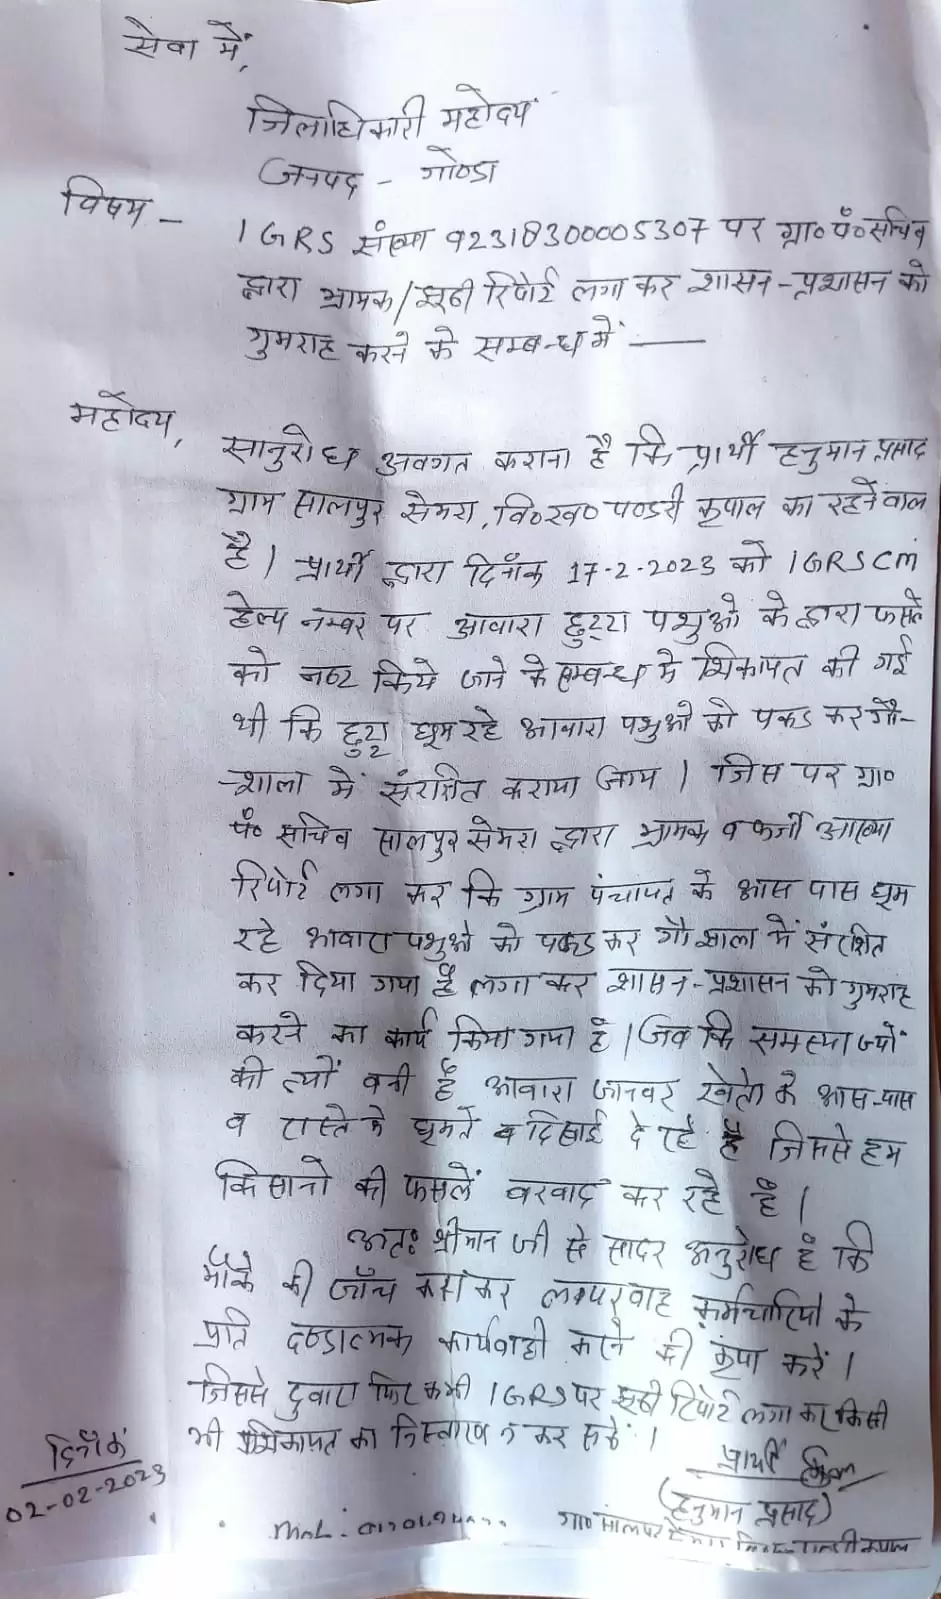 सेवा में,
जिलाधिकारी महोदय
जनपद - गोण्डा
विषय - IGRS संख्या 92318300005307 पर ग्रा० पं० सचिव
द्वारा भ्रामक/झूठी रिपोर्ट लगा कर शासन-प्रशासन को
गुमराह करने के सम्बन्ध में
महोदय,
सानुरोध अवगत कराना है कि प्रार्थी हनुमान प्रसाद
ग्राम सालपुर सेमरा, वि०ख० पण्डरी कृपाल का रहने वाल
है। प्रार्थी द्वारा दिनाँक 17-2-2023 को IGRS CM
हेल्प नम्बर पर आवारा छुट्टा पशुओ के द्वारा फसलें
को नष्ट किये जाने के सम्बन्ध मे शिकायत की गई
थी कि छुट्टा घूम रहे आवारा पशुओ को पकड कर गौ-
-शाला में संरक्षित कराया जाय। जिस पर ग्रा०
पं० सचिव सालपुर सेमरा द्वारा भ्रामक व फर्जी आख्या
रिपोर्ट लगा कर कि ग्राम पंचायत के आस पास घूम
रहे आवारा पशुओ को पकड कर गौशाला में संरक्षित
कर दिया गया है लगा कर शासन-प्रशासन को गुमराह
करने का कार्य किया गया है। जब कि समस्या ज्यों
की त्यों बनी है आवारा जानवर खेतो के आस-पास
व रास्ते के घूमते व दिखाई दे रहे है जिससे हम
किसानो की फसलें बरबाद कर रहे है।
अतः श्रीमान जी से सादर अनुरोध है कि
मौके की जाँच करा कर लापरवाह कर्मचारियो के
प्रति दण्डात्मक कार्यवाही करने की कृपा करें।
जिससे दुबारा फिर कभी IGRS पर झूठी रिपोर्ट लगा कर किसी
भी शिकायत का निस्तारण न कर सकें।
दिनाँक
02-02-2023
प्रार्थी
(हनुमान प्रसाद)
Mob:
ग्रा० सालपुर सेमरा